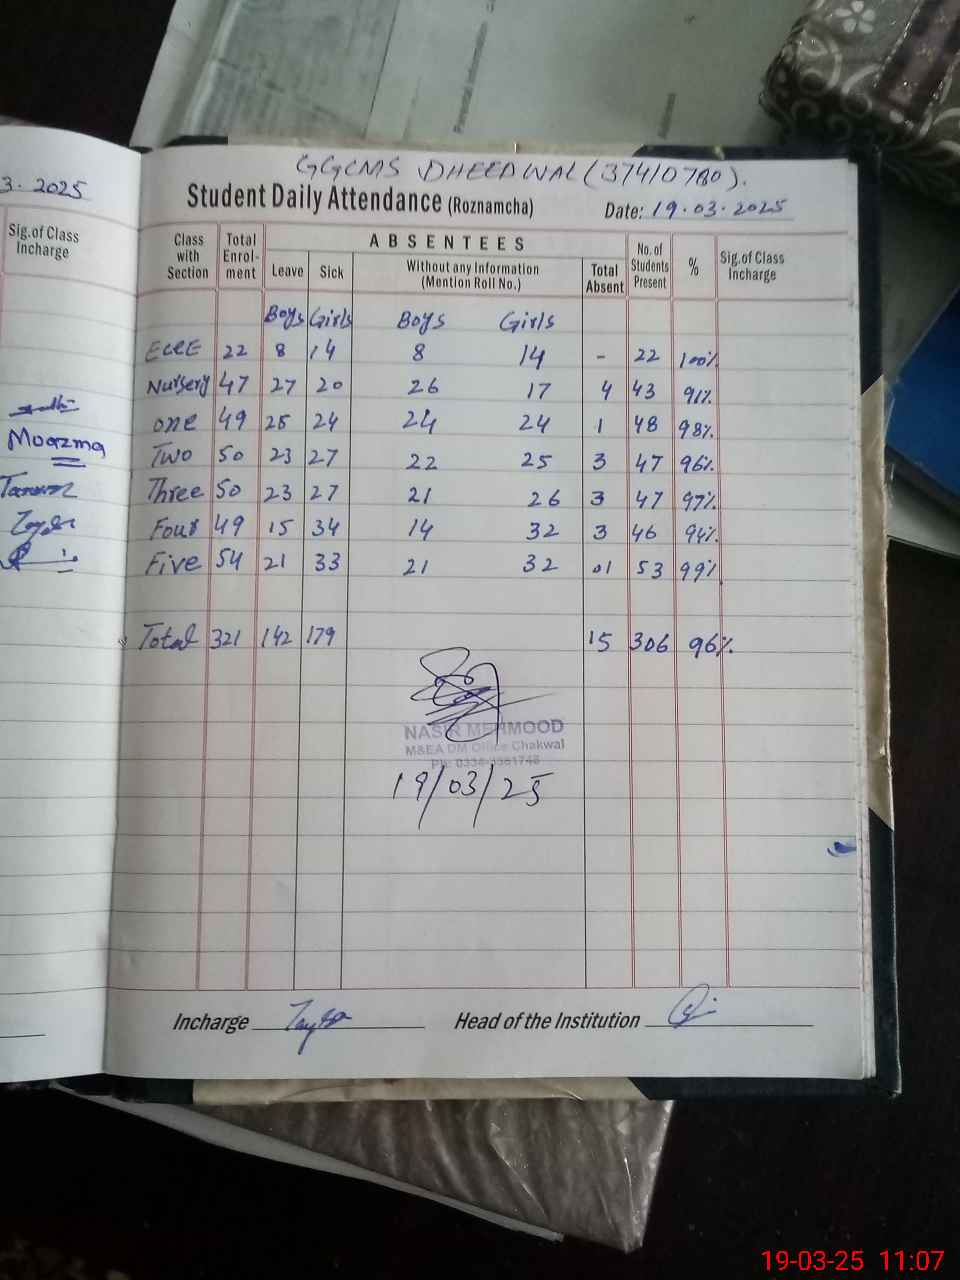 3.2025
Sig.of Class
Incharge
Moazma
GGCMS DHEEDWAL (37410780).
Student Daily Attendance (Roznamcha) Date: 19.03.2025
Class with Section Total Enrol-ment ABSENTEES No. of Students Present % Sig.of Class Incharge
Leave Sick Without any Information (Mention Roll No.) Total Absent
Boys Girls Boys Girls
ECCE 22 8 14 8 14 - 22 100%
Nursery 47 27 20 26 17 4 43 91%
one 49 25 24 24 24 1 48 98%
Two 50 23 27 22 25 3 47 96%
Three 50 23 27 21 26 3 47 97%
Four 49 15 34 14 32 3 46 94%
Five 54 21 33 21 32 01 53 99%
Total 321 142 179 15 306 96%.
NASIR MEHMOOD
M&EA DM Office Chakwal
19/03/25
Incharge Head of the Institution
19-03-25 11:07